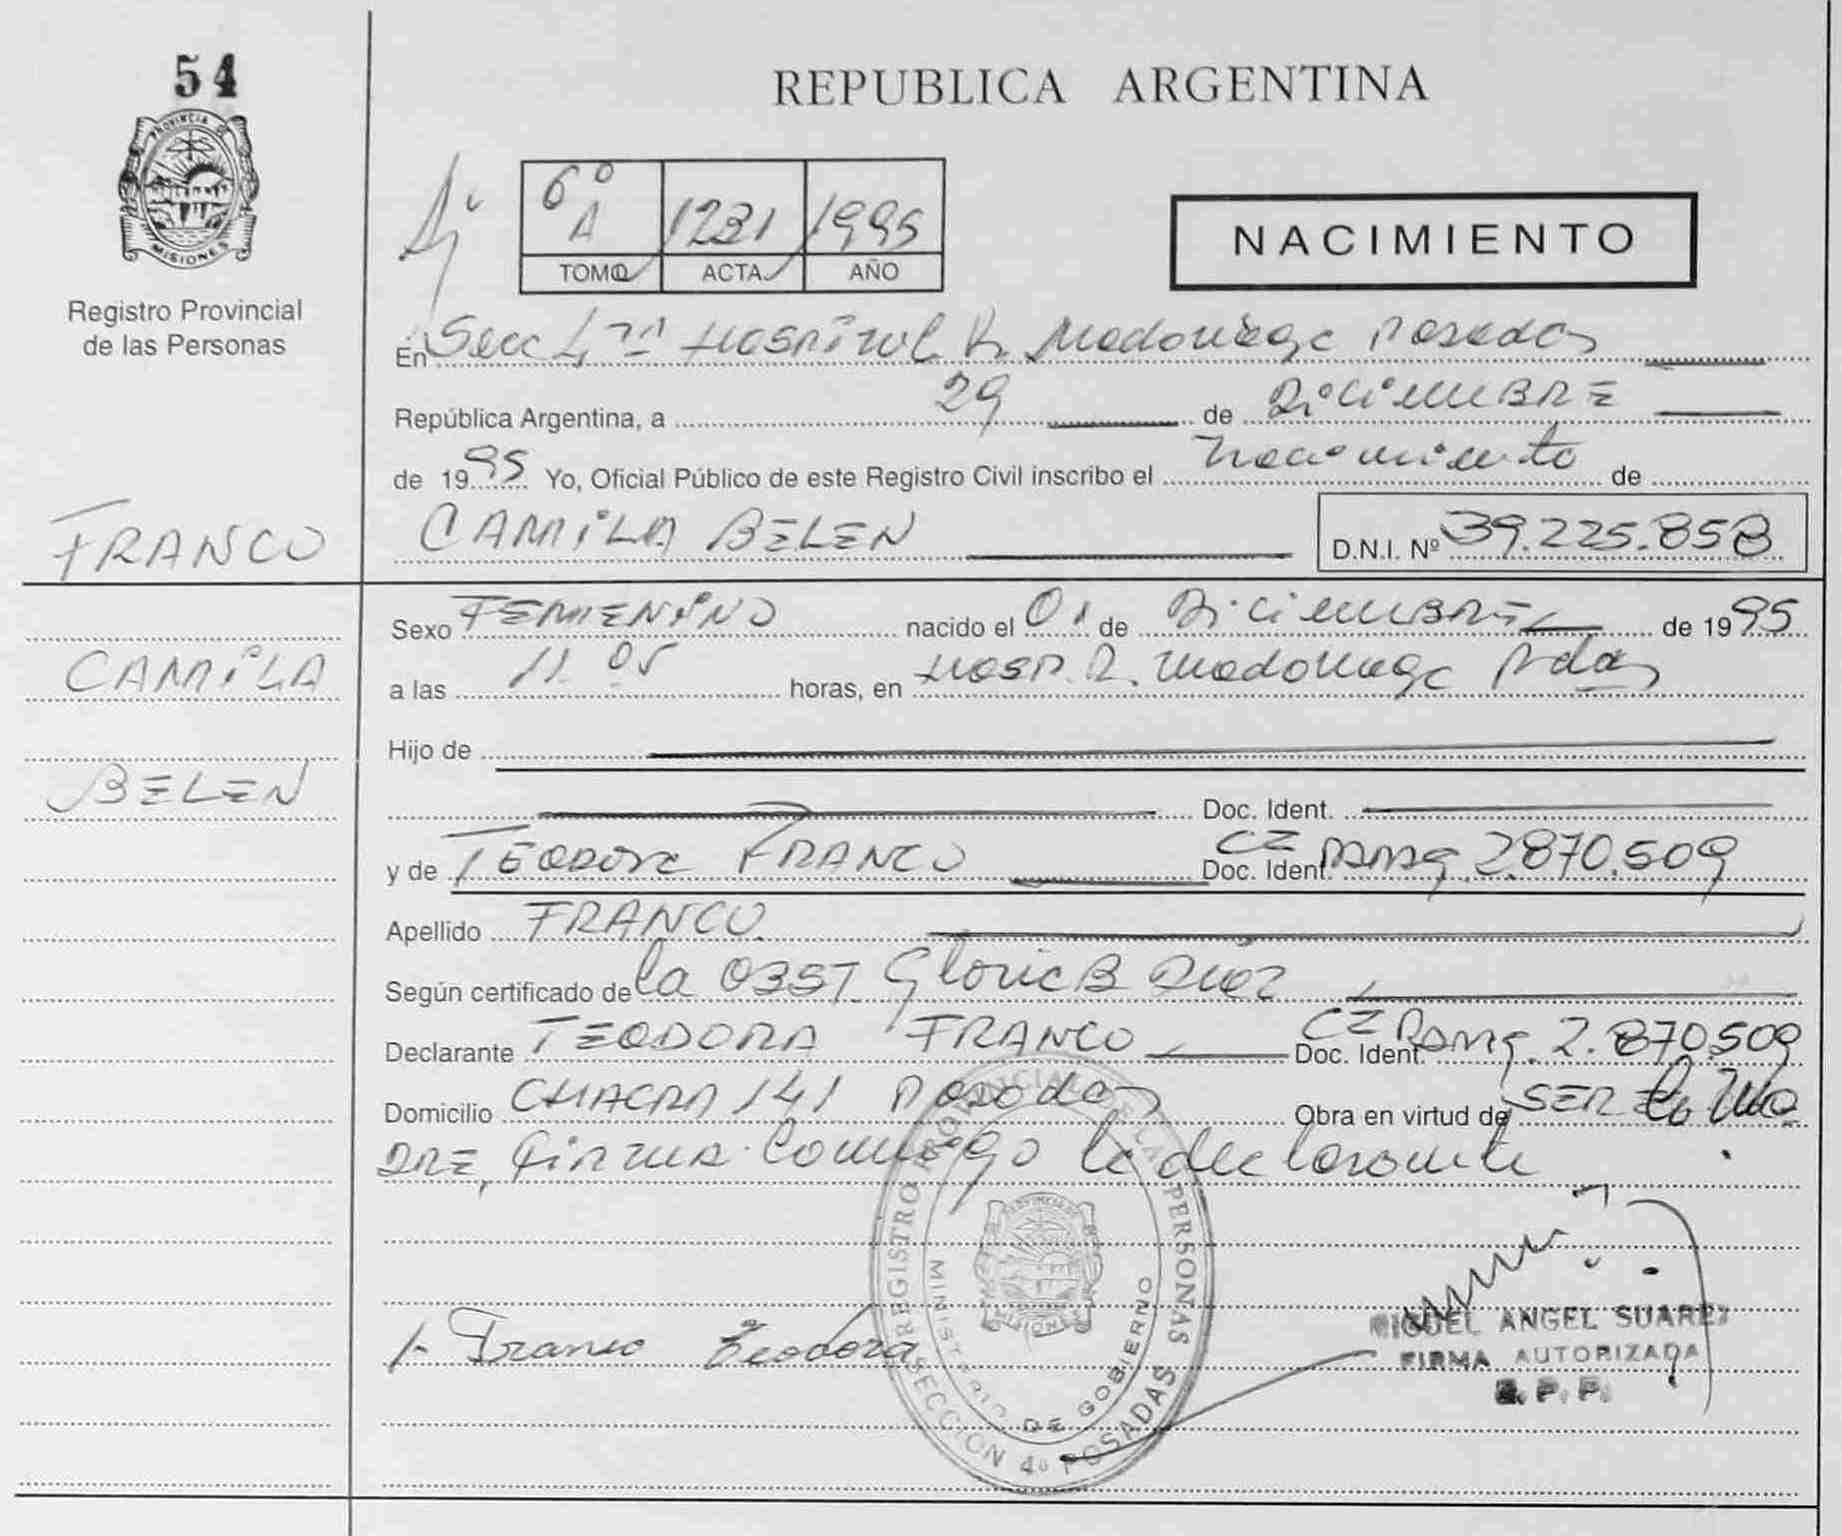 54
PROVINCIA DE
MISIONES
Registro Provincial
de las Personas
FRANCO
CAMILA
BELEN
REPUBLICA ARGENTINA
6º A 1231 1995
TOMO ACTA AÑO
NACIMIENTO
En Secc 4ta Hospital R. Madariaga Posadas
República Argentina, a 29 de DICIEMBRE
de 1995 Yo, Oficial Público de este Registro Civil inscribo el nacimiento de
CAMILA BELEN D.N.I. Nº 39.225.858
Sexo FEMIENINO nacido el 01 de DiCiEMBRE de 1995
a las 11 05 horas, en HOSP. R. Madariaga Pdas
Hijo de
Doc. Ident.
y de TEODORA FRANCO Doc. Ident. CZ Parag. 2.870.509
Apellido FRANCO
Según certificado de la OBST Gloria B
Declarante TEODORA FRANCO Doc. Ident. CZ Parag. 2.870.509
Domicilio CHACRA 141 Posadas Obra en virtud de SER la MA
DRE, FIRMA Conmigo la declarante
1- Franco Teodora
REGISTRO PROVINCIAL DE LAS PERSONAS
MINISTERIO DE GOBIERNO
SECCION 4º POSADAS
MIGUEL ANGEL SUAREZ
FIRMA AUTORIZADA
R. P. P.